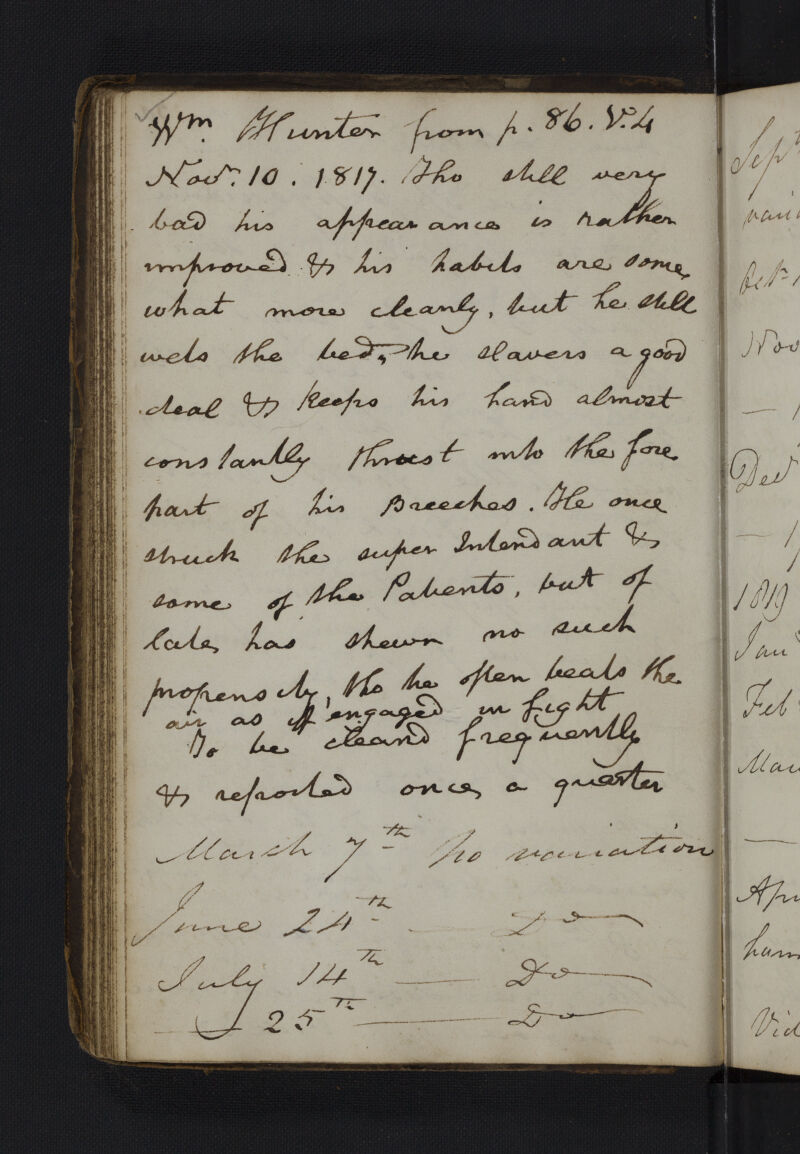 Wm. Hunter from p. 86. V. 4
Novr. 10. 1817. Tho still very
bad his appearance is rather
improved & his habits are some
what more cleanly, but he still
wets the bed, he slavers a good
deal & keeps his hand almost
constantly thrust into the fore
part of his Breeches. He once
struck the super Intendant &
some of the Patients, but of
late has shewn no such
propensity, tho he often beats the
air as if engaged in fight
To be cleand frequently
& reported once a quarter
March 7th No variation
June 24th — Do
July 14th — Do
— 25th — Do
Sept
Nov
—
Dec
—
1819
Jan
Feb
—